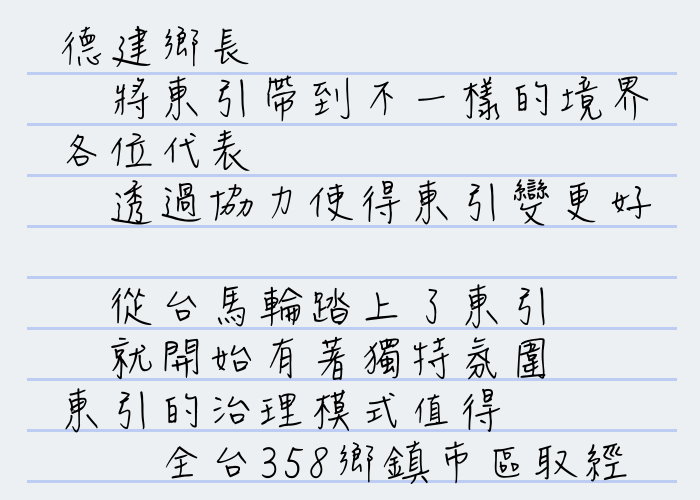 德建鄉長
將東引帶到不一樣的境界
各位代表
透過協力使得東引變更好
從台馬輪踏上了東引
就開始有著獨特氛圍
東引的治理模式值得
全台358鄉鎮市區取經